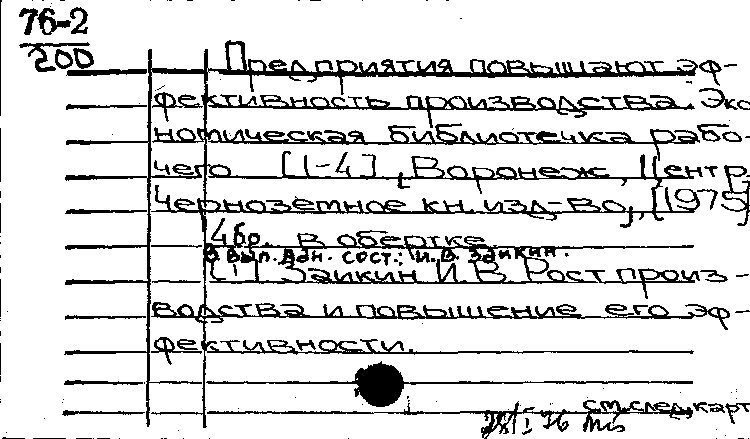 76-2
200
Предприятия повышают эф-
фективность производства. Эко
номическая библиотечка рабо-
чего [1-4], Воронеж, Центр.
Черноземное кн. изд-во, [1975]
4 бр. в обертке
В вып. дан. сост.: И. В. Заикин.
[1] Заикин И. В. Рост произ-
водства и повышение его эф-
фективности.
см. след. карт
28/I 76